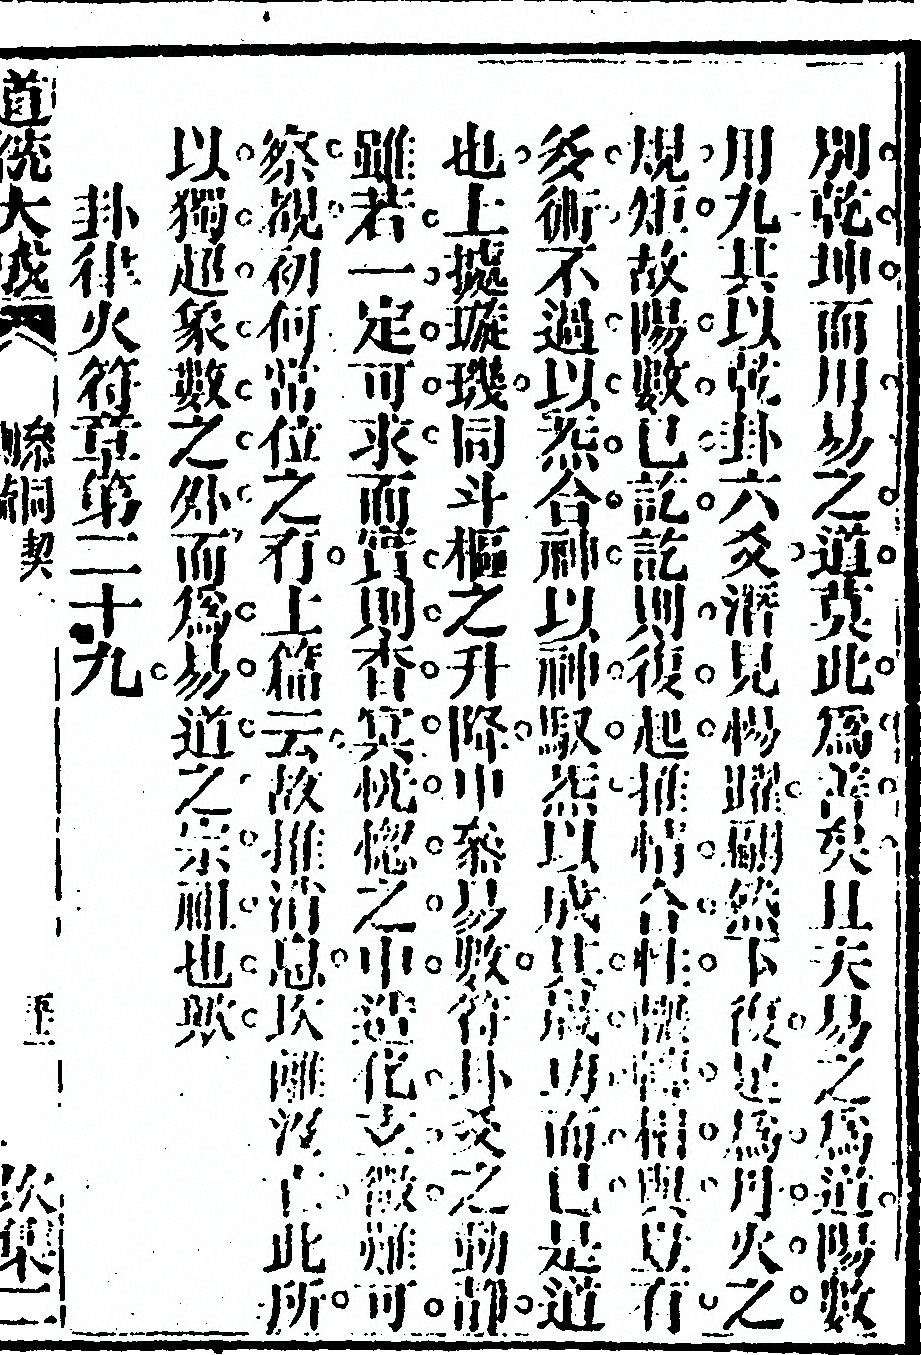 別乾坤而用易之道莫此為善矣且夫易之為道陽數
用九其以乾卦六爻潛見惕躍顯然下復是為丹火之
規矩故陽數已訖訖則復起推情合性轉相與且有
多術不過以炁合神以神馭炁以成其歲功而已是道
也上據璇璣同斗樞之升降中叅易數符卦爻之動靜
雖若一定可求而實則杳冥恍惚之中造化玄微難可
察覩初何常位之有上篇云故推消息坎離沒亡此所
以獨超象數之外而為易道之宗祖也歟
卦律火符章第二十九
道統大成 叅同契 坎集二